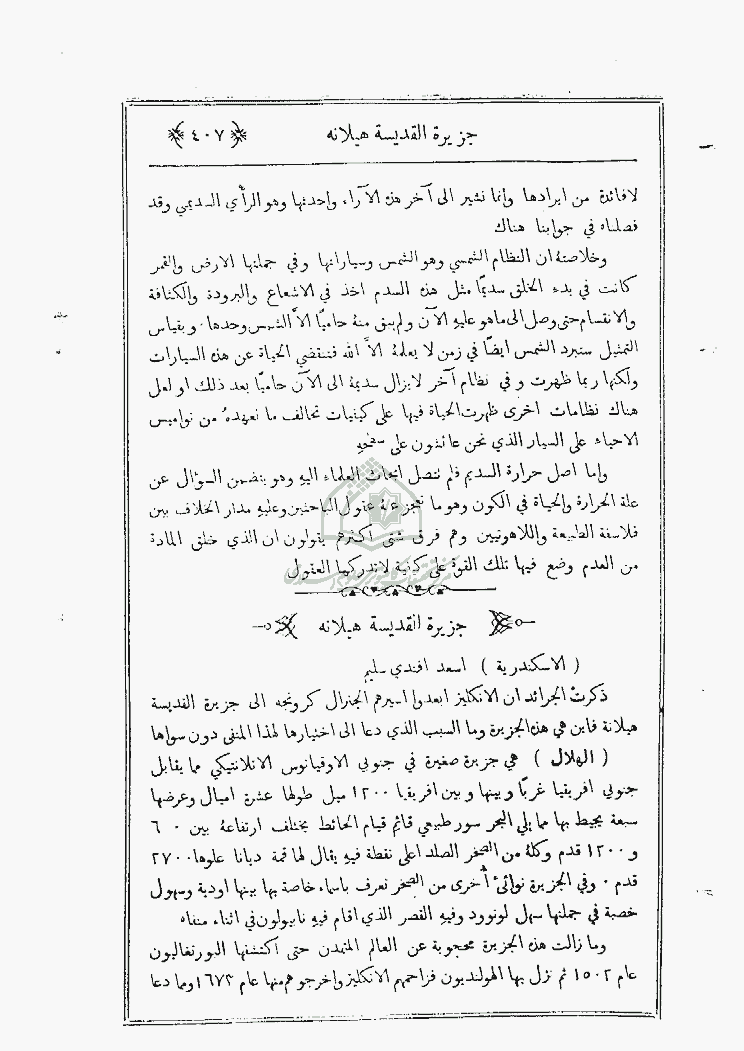 جزيرة القديسة هيلانه ﴿٤٠٧﴾
لا فائدة من ايرادها وانما نشير الى آخر هذه الآراء واحدثها وهو الرأي السديمي وقد
فصلناه في جوابنا هناك
وخلاصته ان النظام الشمسي وهو الشمس وسياراتها وفي جملتها الارض والقمر
كانت في بدء الخلق سديمًا مثل هذه السدم اخذ في الاشعاع والبرودة والكثافة
والانقسام حتى وصل الى ما هو عليه الآن ولم يبق منهُ حاميًا الاَّ الشمس وحدها . وبقياس
التمثيل ستبرد الشمس ايضًا في زمن لا يعلمهُ الاَّ الله فتنقضي الحياة عن هذه السيارات
ولكنها ربما ظهرت في نظام آخر لا يزال سديمهُ الى الآن حاميًا بعد ذلك او لعل
هناك نظامات اخرى ظهرت الحياة فيها على كيفيات تخالف ما نعهدهُ من نواميس
الاحياء على السيار الذي نحن عائشون على سطحهِ
واما اصل حرارة السديم فلم تتصل ابحاث العلماء اليهِ وهو يتضمن السؤال عن
علة الحرارة والحياة في الكون وهو ما تعجز عنهُ عقول الباحثين وعليهِ مدار الخلاف بين
فلاسفة الطبيعة واللاهوتيين وهم فرق شتى اكثرهم يقولون ان الذي خلق المادة
من العدم وضع فيها تلك القوة على كيفية لا تدركها العقول
جزيرة القديسة هيلانه
( الاسكندرية ) اسعد افندي سليم
ذكرت الجرائد ان الانكليز ابعدوا اسيرهم الجنرال كرونجه الى جزيرة القديسة
هيلانة فاين هي هذه الجزيرة وما السبب الذي دعا الى اختيارها لهذا المنفى دون سواها
( الهلال ) هي جزيرة صغيرة في جنوبي الاوقيانوس الاتلانتيكي مما يقابل
جنوبي افريقيا غربًا وبينها وبين افريقيا ١٢٠٠ ميل طولها عشرة اميال وعرضها
سبعة يحيط بها مما يلي البحر سور طبيعي قائم قيام الحائط يختلف ارتفاعهُ بين ٦٠٠
و ١٢٠٠ قدم وكلهُ من الصخر الصلد اعلى نقطة فيهِ يقال لها قمة ديانا علوها ٢٧٠٠
قدم . وفي الجزيرة نوائئ أخرى من الصخر تعرف باسماء خاصة بها بينها اودية وسهول
خصبة في جملتها سهل لونوود وفيهِ القصر الذي اقام فيهِ نابوليون في اثناء منفاه
وما زالت هذه الجزيرة محجوبة عن العالم المتمدن حتى اكتشفها البورتغاليون
عام ١٥٠٢ ثم نزل بها الهولنديون فزاحمهم الانكليز واخرجوهم منها عام ١٦٧٣ وما دعا